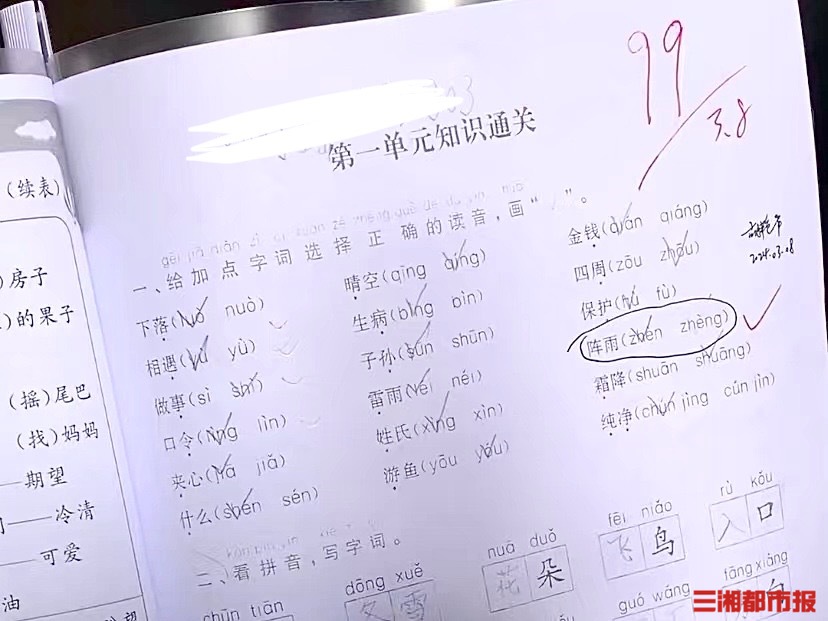 (续表)
)房子
)的果子
(摇)尾巴
(找)妈妈
期望
——冷清
——可爱
油
99
3.8
2024.03.08
第一单元知识通关
一、给加点字词选择正确的读音,画“ ”。
下落(luò nuò)
相遇(yù yǜ)
做事(sì shì)
口令(lìng lìn)
夹心(jiā jiǎ)
什么(shén sén)
晴空(qīng qíng)
生病(bìng bìn)
子孙(sūn shūn)
雷雨(léi néi)
姓氏(xìng xìn)
游鱼(yōu yóu)
金钱(qián qiáng)
四周(zōu zhōu)
保护(hù fù)
阵雨(zhèn zhèng)
霜降(shuān shuāng)
纯净(chún jìng cún jìn)
二、看拼音,写字词。
chūn tiān
dōng xuě
冬雪
huā duǒ
花朵
fēi niǎo
飞鸟
rù kǒu
入口
guó wáng
fāng xiàng
三湘都市报